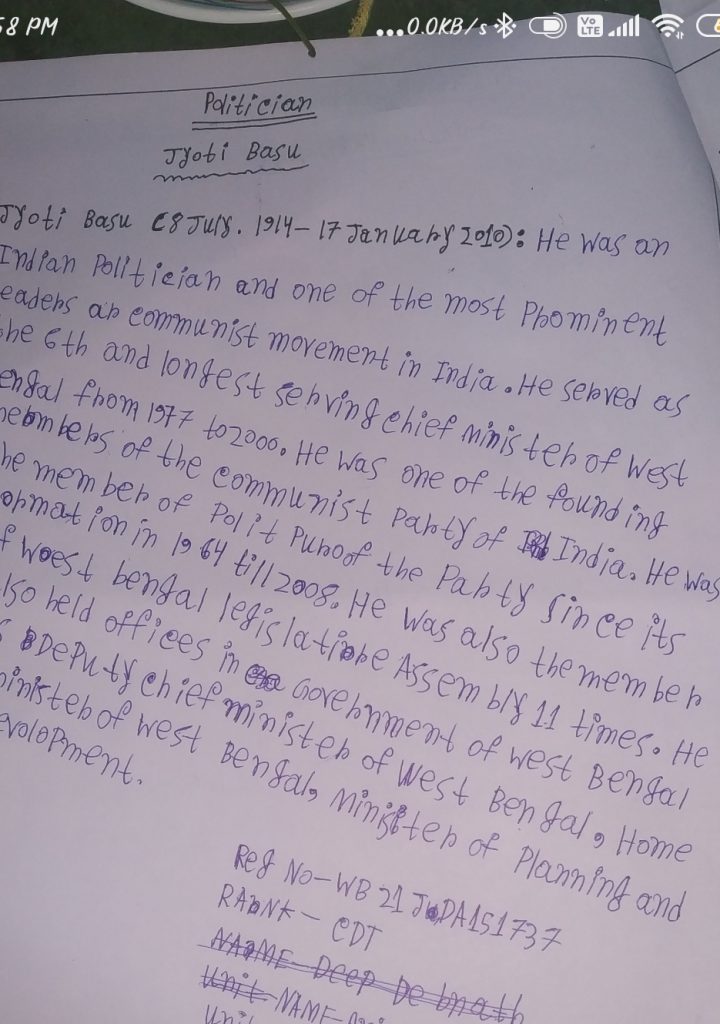 58 PM
...0.0KB/s Vo LTE
Politician
Jyoti Basu
Jyoti Basu (8 July. 1914 – 17 January 2010): He was an
Indian Politician and one of the most Prominent
eaders ar communist movement in India. He served as
he 6th and longest serving chief minister of West
engal from 1977 to 2000. He was one of the founding
members of the communist Party of India. He was
he member of Polit Puro of the Party Since its
ormation in 1964 till 2008. He was also the member
f woest bengal legislative Assembly 11 times. He
lso held offices in Government of west Bengal
s DePuty Chief minister of West Bengal, Home
minister of west Bengal, Minister of Planning and
evolopment.
Reg No – WB 21 JDA151737
RANK – CDT
NAME – Deep Debnath
Unit NAME –
Unit